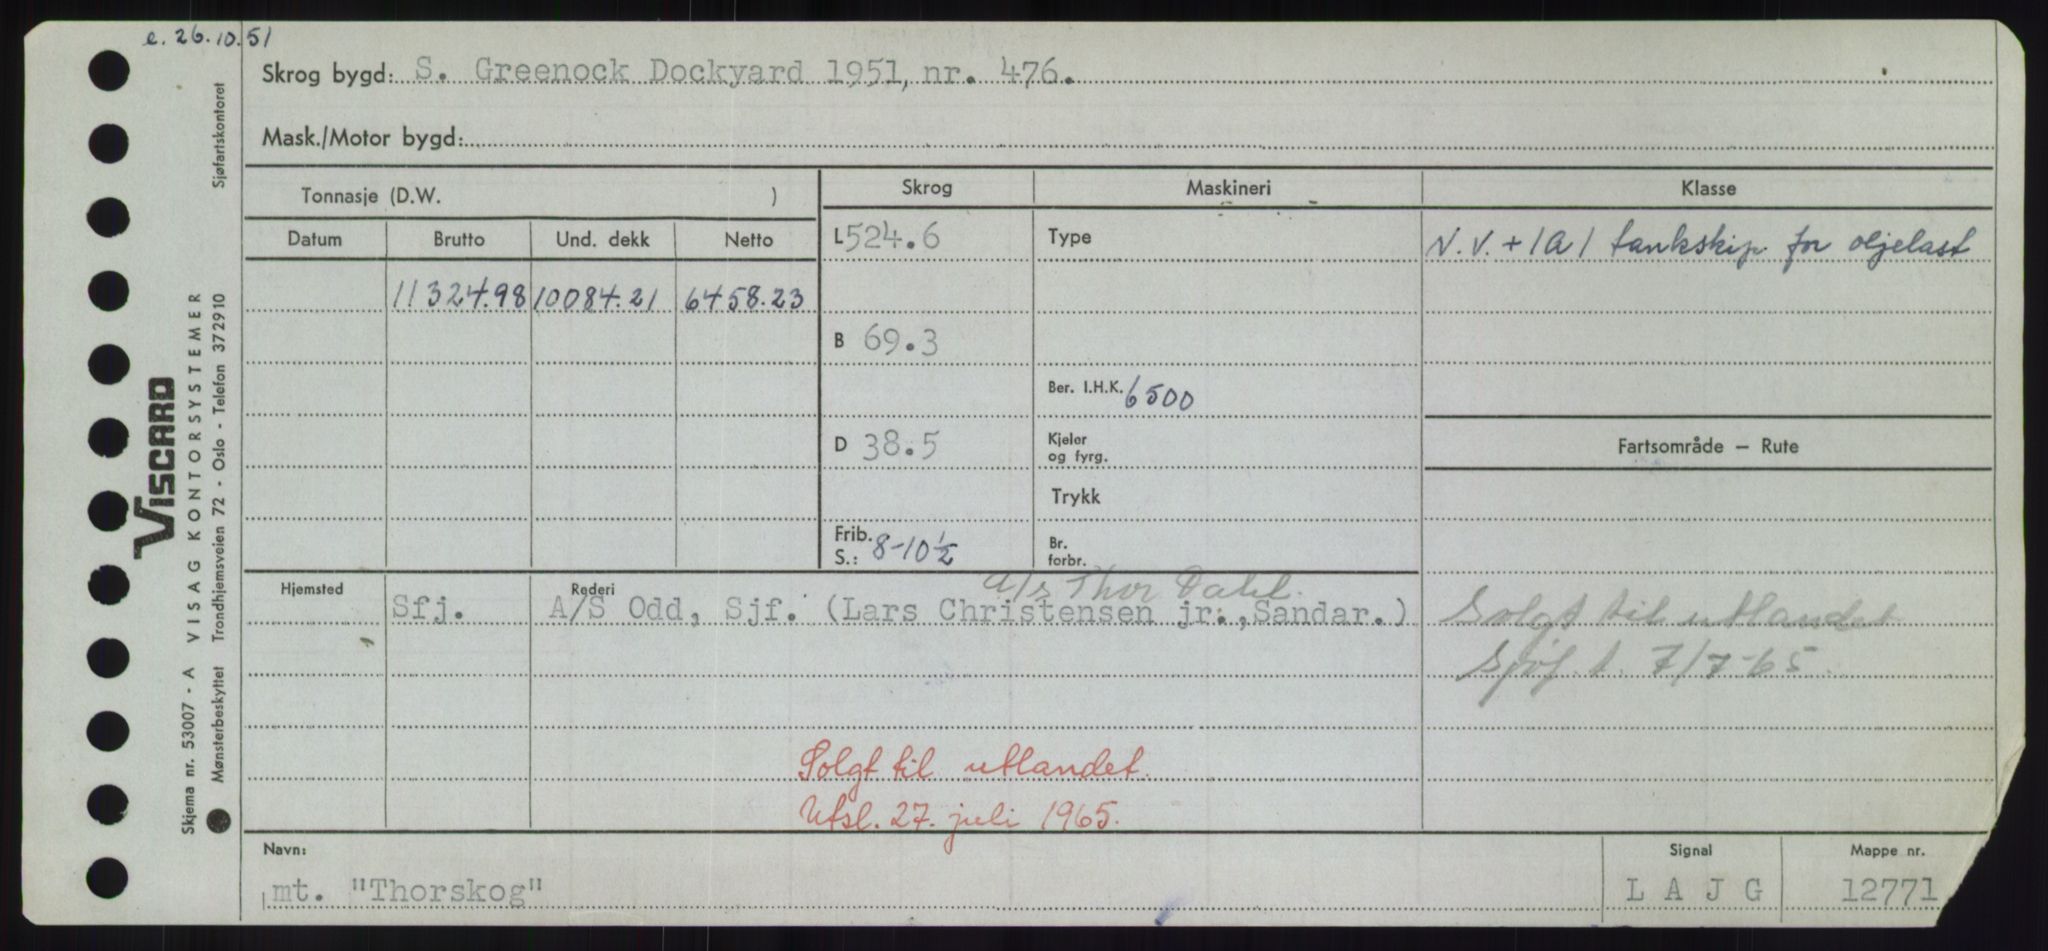 e. 26.10.51
Skrog bygd: S. Greenock Dockyard 1951, nr. 476.
Mask./Motor bygd:
Tonnasje (D.W. )
Skrog
Maskineri
Klasse
Datum
Brutto
Und. dekk
Netto
L 524.6
Type
N.V. + 1A1 tankskip for oljelast
11324.98 10084.21 6458.23
B 69.3
Ber. I.H.K. 6500
D 38.5
Kjeler
og fyrg.
Fartsområde — Rute
Trykk
Frib.
S.: 8-10½
Br.
forbr.
Hjemsted
Rederi
A/S Thor Dahl.
Sfj. A/S Odd, Sjf. (Lars Christensen jr., Sandar.)
Solgt til utlandet
Sjøf. t. 7/7-65.
Solgt til utlandet.
Utsl. 27. juli 1965.
Navn:
mt. "Thorskog"
Signal
LAJG
Mappe nr.
12771
VISCARD
VISAG KONTORSYSTEMER
Sjøfartskontoret
Skjema nr. 53007 - A
Mønsterbeskyttet Trondhjemsveien 72 - Oslo - Telefon 372910